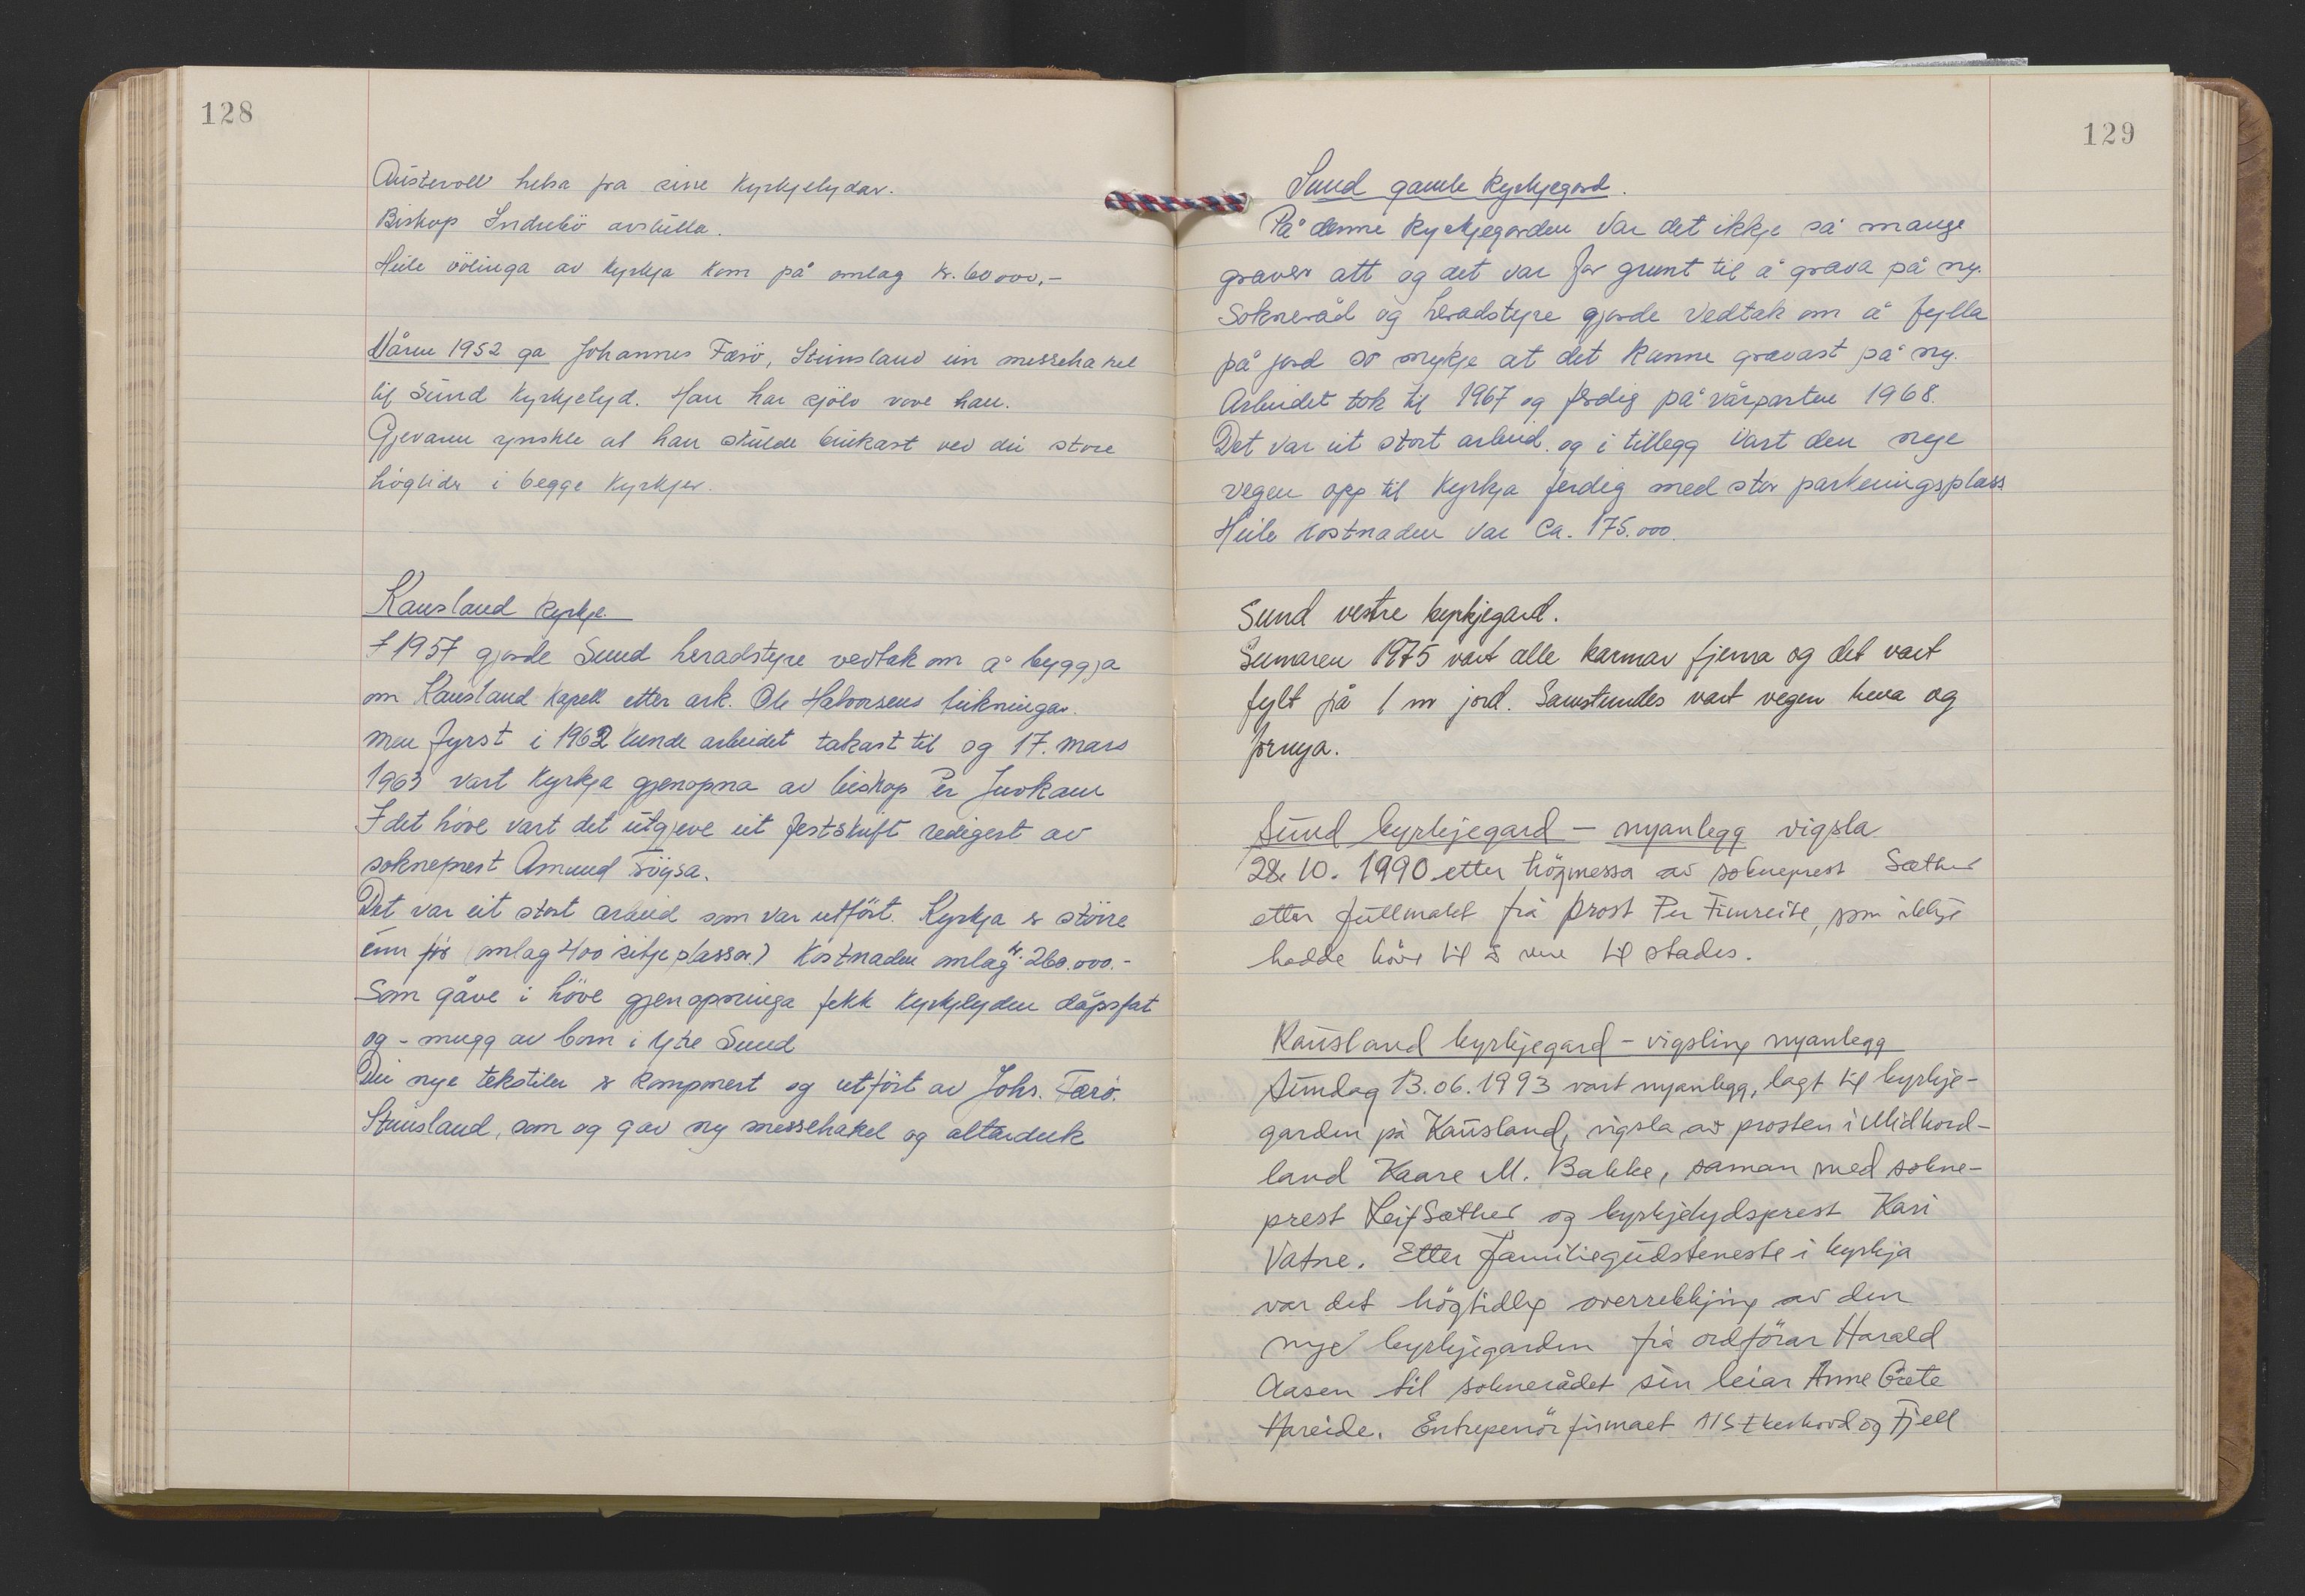 128
Austevoll helsa fra sine kyrkjelydar.
Biskop Indrebö avslutta.
Heile völinga av kyrkja kom på omlag kr. 60000,-
Våren 1952 ga Johannes Færö, Steinsland ein messehakel
til Sund kyrkjelyd. Han har sjölv vove han.
Gjevaren ynskte at han skulde brukast ved dei store
högtider i begge kyrkjer.
Kausland kyrkje.
I 1957 gjorde Sund heradstyre vedtak om å byggja
om Kausland kapell etter ark. Ole Halvorsens teikningar.
men fyrst i 1962 kunde arbeidet takast til og 17. mars
1963 vart kyrkja gjenopna av biskop Per Juvkam
I det höve vart det utgjeve eit festskrift redigert av
sokneprest Amund Töysa.
Det var eit stort arbeid som var utfört. Kyrkja er större
enn för (omlag 400 sitjeplassar) Kostnaden omlag kr. 260.000.-
Som gåve i höve gjenopninga fekk kyrkjelyden dåpsfat
og - mugg av born i Ytre Sund
Dei nye tekstiler er komponert og utfört av Johs. Færö.
Steinsland, som og gav ny messehakel og alterduk
129
Sund gamle kyrkjegard.
På denne kyrkjegarden var det ikkje så mange
graver att og det var for grunt til å grava på ny.
Sokneråd og heradstyre gjorde vedtak om å fylla
på jord so mykje at det kunne gravast på ny.
Arbeidet tok til 1967 og ferdig på vårparten 1968.
Det var eit stort arbeid. og i tillegg vart den nye
vegen opp til kyrkja ferdig med stor parkeringsplass
Heile kostnaden var ca. 175.000.
Sund vestre kyrkjegard.
Sumaren 1975 vart alle karmar fjerna og det vart
fylt på 1 m jord. Samstundes vart vegen heva og
fornya.
Sund kyrkjegard - nyanlegg vigsla
28. 10. 1990 etter högmessa av sokneprest Sæther
etter fullmakt frå prost Per Fimreite, som ikkje
hadde höve til å vere til stades.
Kausland kyrkjegard - vigsling nyanlegg
Sundag 13.06.1993 vart nyanlegg, lagt til kyrkje-
garden på Kausland, vigsla av prosten i Midhord-
land Kaare M. Bakke, saman med sokne-
prest Leif Sæther og kyrkjelydsprest Kari
Vatne. Etter familiegudsteneste i kyrkja
var det högtidleg overrekkjing av den
nye kyrkjegarden frå ordförar Harald
Aasen til soknerådet sin leiar Anne Grete
Hareide. Entrepenörfirmaet og Fjell